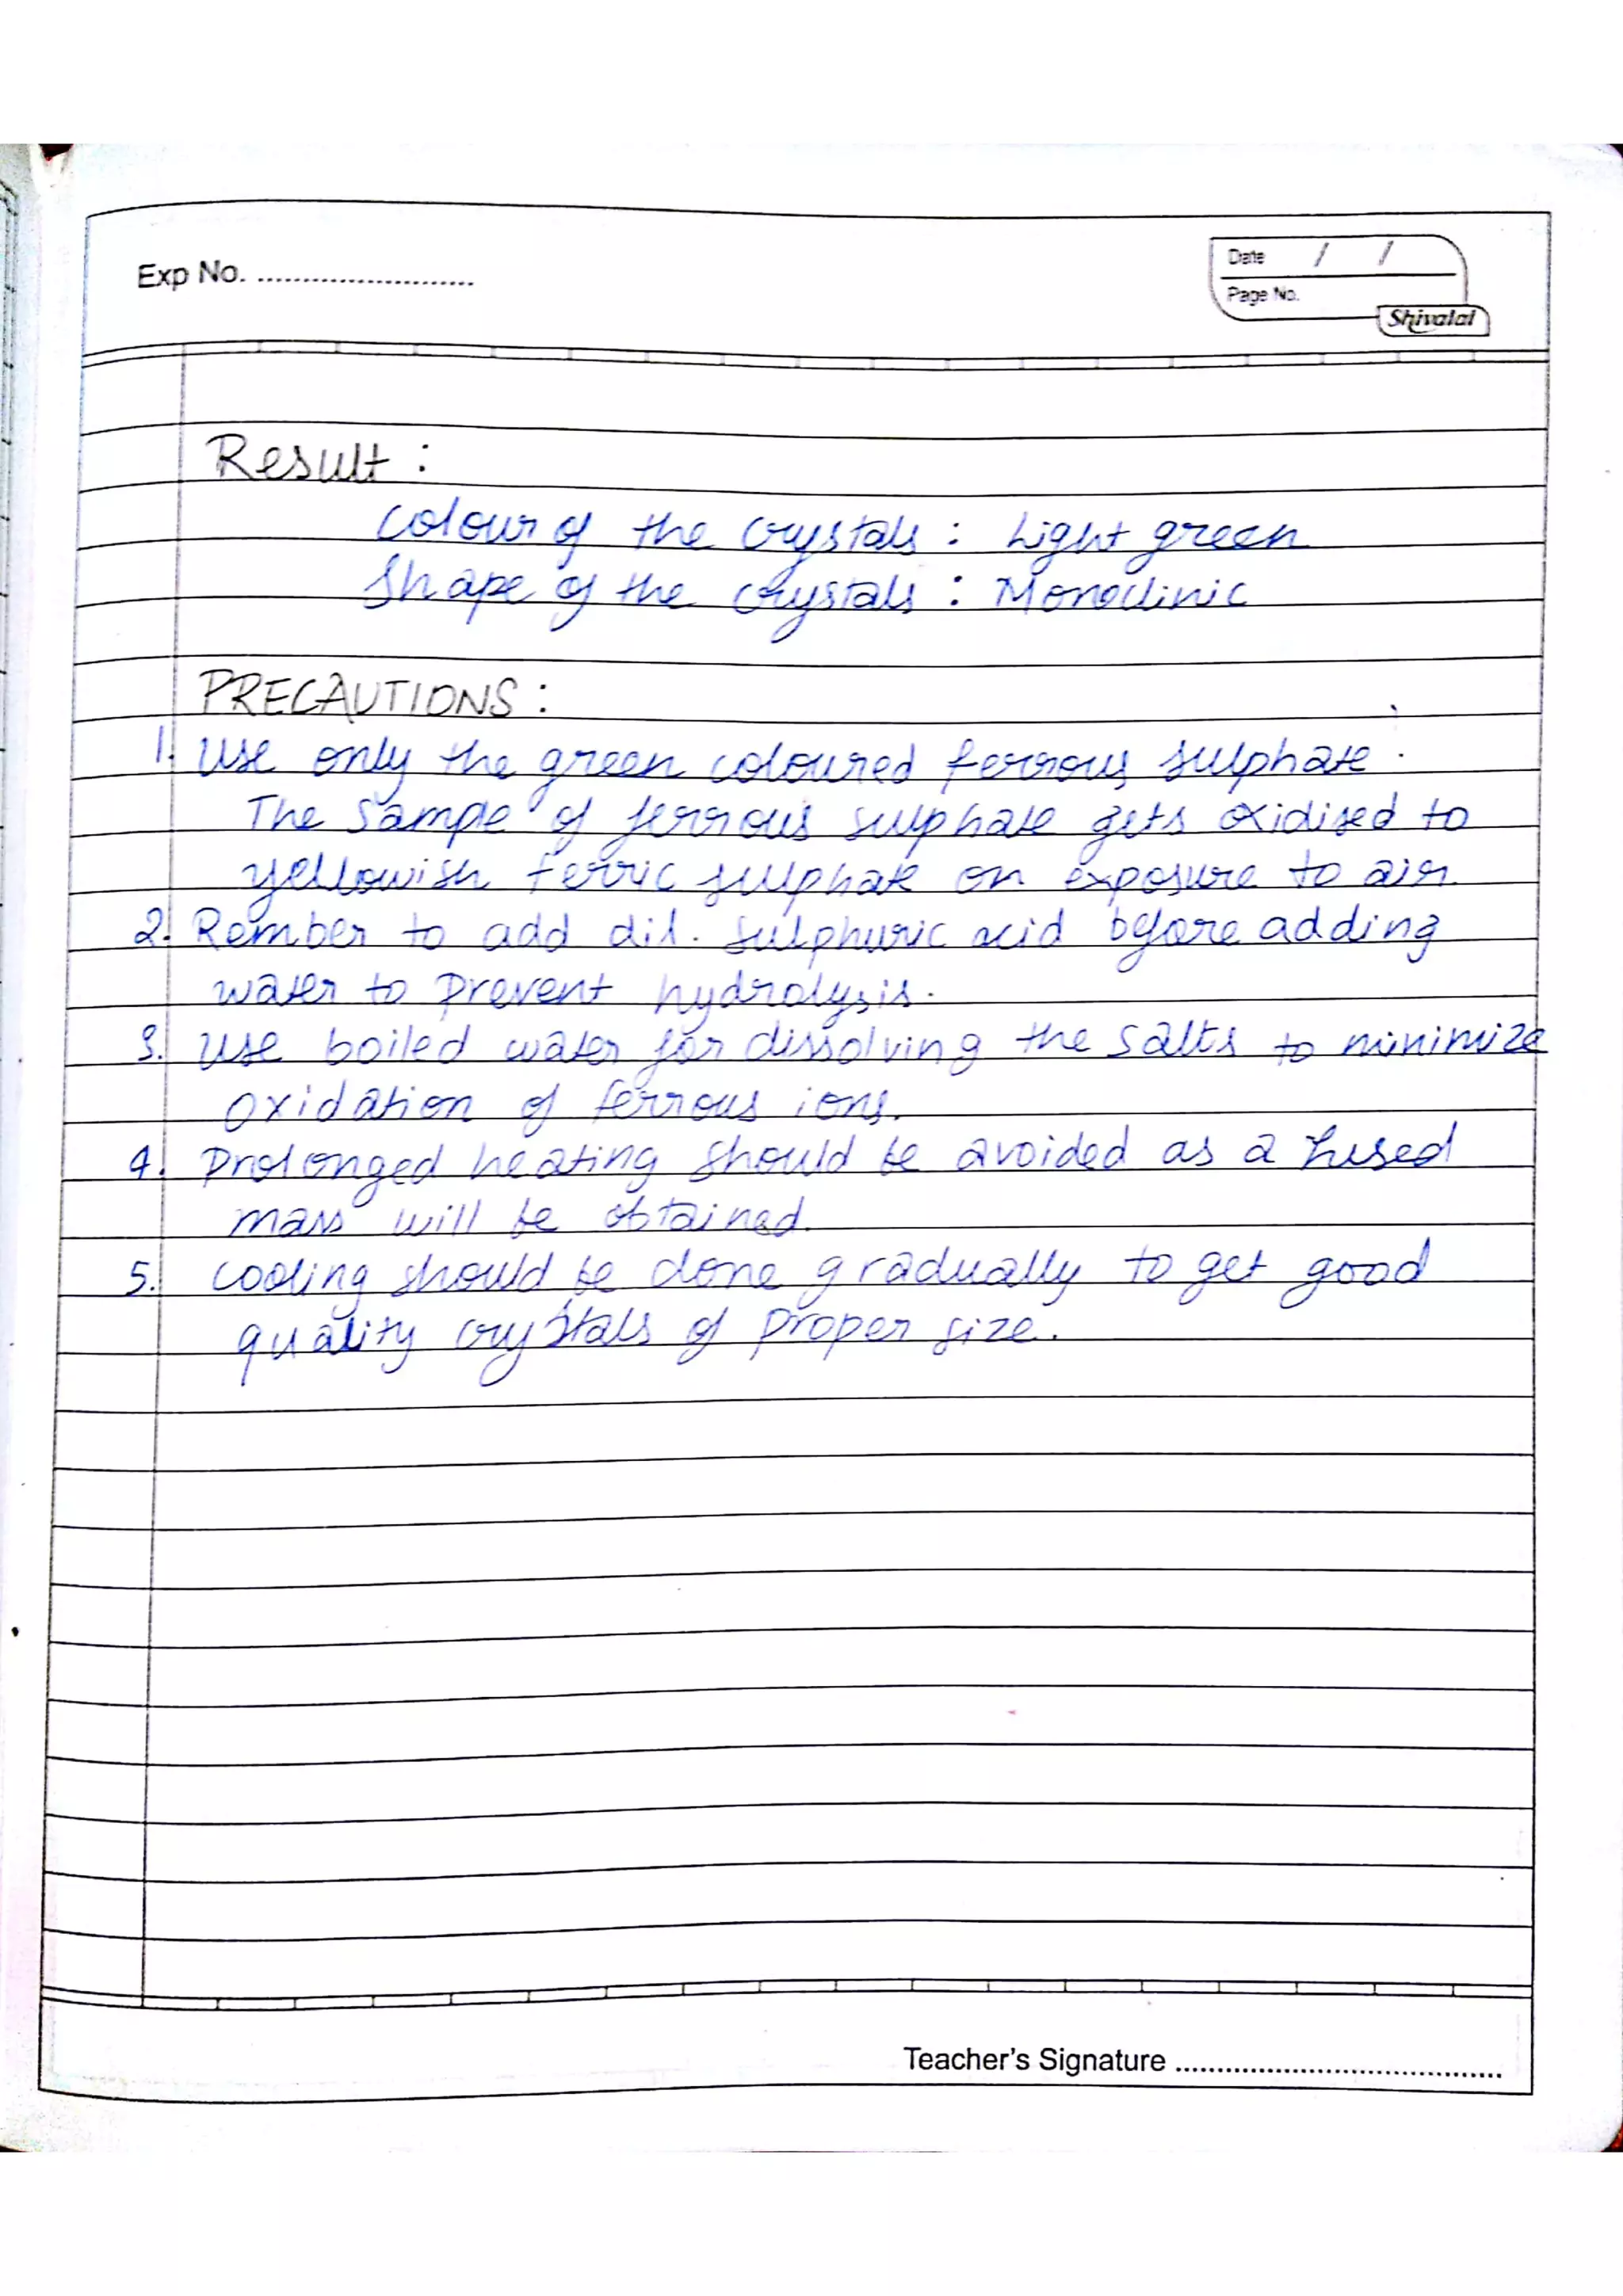 Exp No. ............................
Date / /
Page No.
Shivalal
Result :
Colour of the Crystals : Light green
Shape of the crystals : Monoclinic
PRECAUTIONS :
1. Use only the green coloured ferrous sulphate.
The Sample of ferrous sulphate gets oxidised to
yellowish ferric sulphate on exposure to air.
2. Rember to add dil. sulphuric acid before adding
water to prevent hydrolysis.
3. Use boiled water for dissolving the salts to minimize
oxidation of ferrous ions.
4. Prolonged heating should be avoided as a fused
mass will be obtained.
5. Cooling should be done gradually to get good
quality crystals of proper size.
Teacher's Signature ........................................